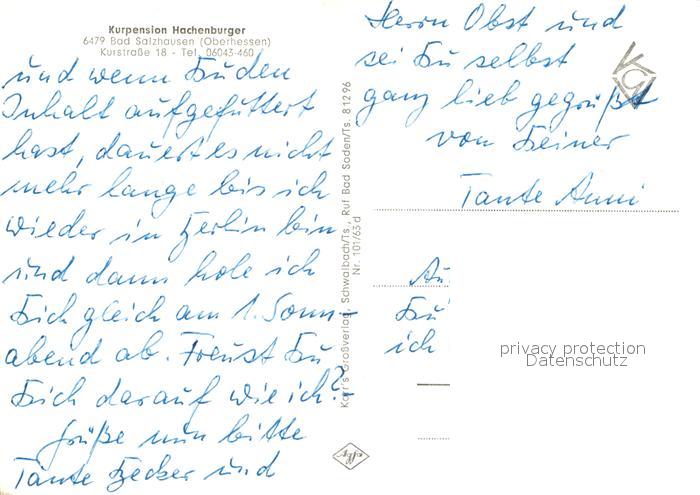 Kurpension Hachenburger
6479 Bad Salzhausen (Oberhessen)
Kurstraße 18 - Tel. 06043-460
und wenn Du den
Inhalt aufgefuttert
hast, dauert es nicht
mehr lange bis ich
wieder in Berlin bin
und dann hole ich
Dich gleich am 1. Sonn-
abend ab. Freust Du
Dich darauf wie ich?-
Grüße nun bitte
Tante Becker und
Karr's Großverlag, Schwalbach/Ts., Ruf Bad Soden/Ts. 81296
Nr. 101/63 d
Herrn Obst und
sei Du selbst
ganz lieb gegrüßt
von Deiner
Tante Anni
Du
ich
privacy protection
Datenschutz